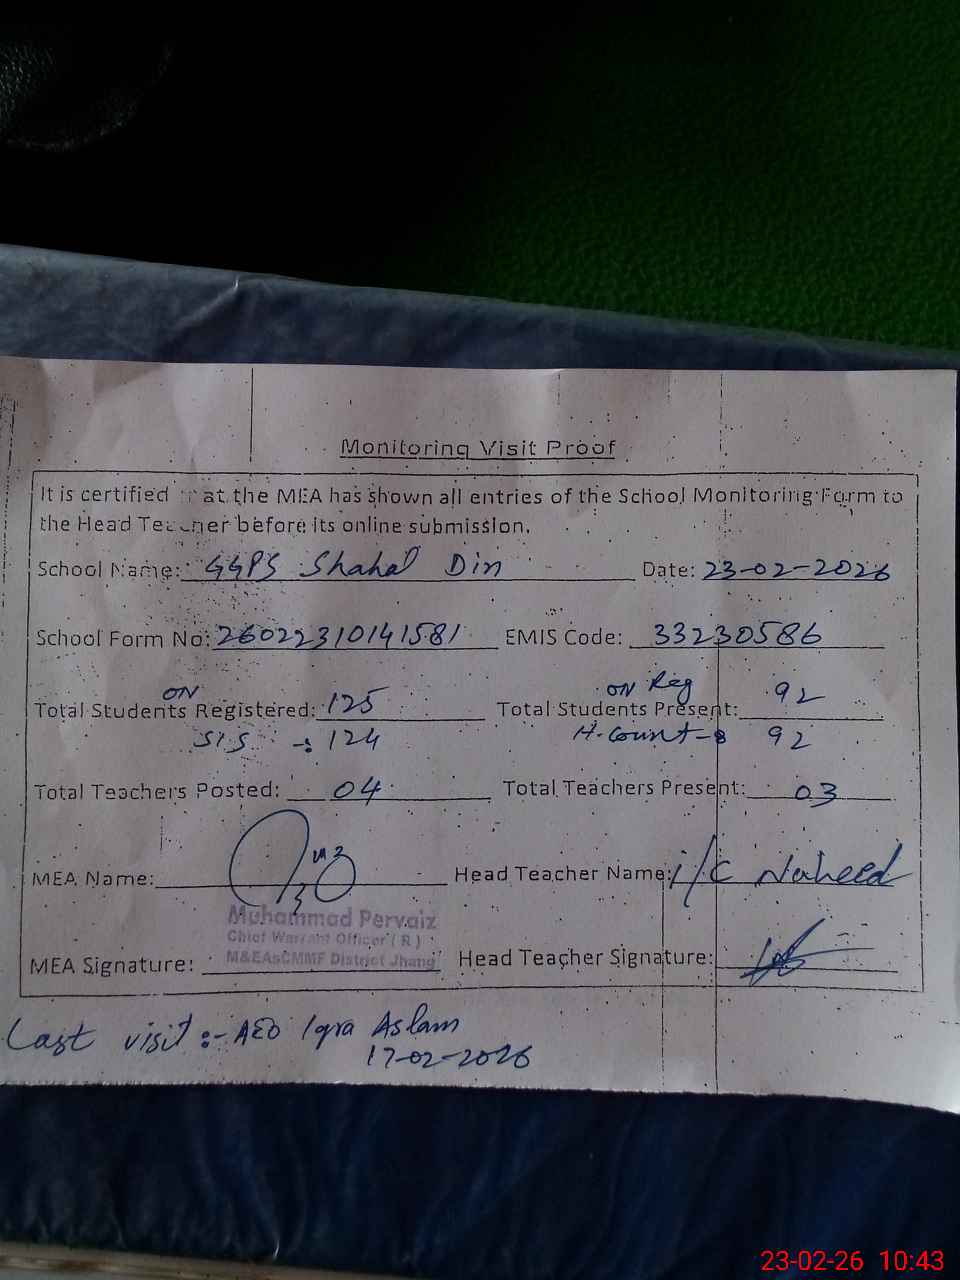 Monitoring Visit Proof
It is certified at the MEA has shown all entries of the School Monitoring Form to
the Head Teacher before its online submission.
School Name: GGPS Shahal Din Date: 23-02-2026
School Form No: 26022310141581 EMIS Code: 33230586
ON ON Reg
Total Students Registered: 125 Total Students Present: 92
SIS -: 124 H.Count- 92
Total Teachers Posted: 04 Total Teachers Present: 03
MEA Name: Head Teacher Name: i/c Naheed
Muhammad Pervaiz
Chief Warrant Officer ( R )
M&EAsCMMF District Jhang
MEA Signature: Head Teacher Signature:
Last visit :- AEO Iqra Aslam
17-02-2026
23-02-26 10:43